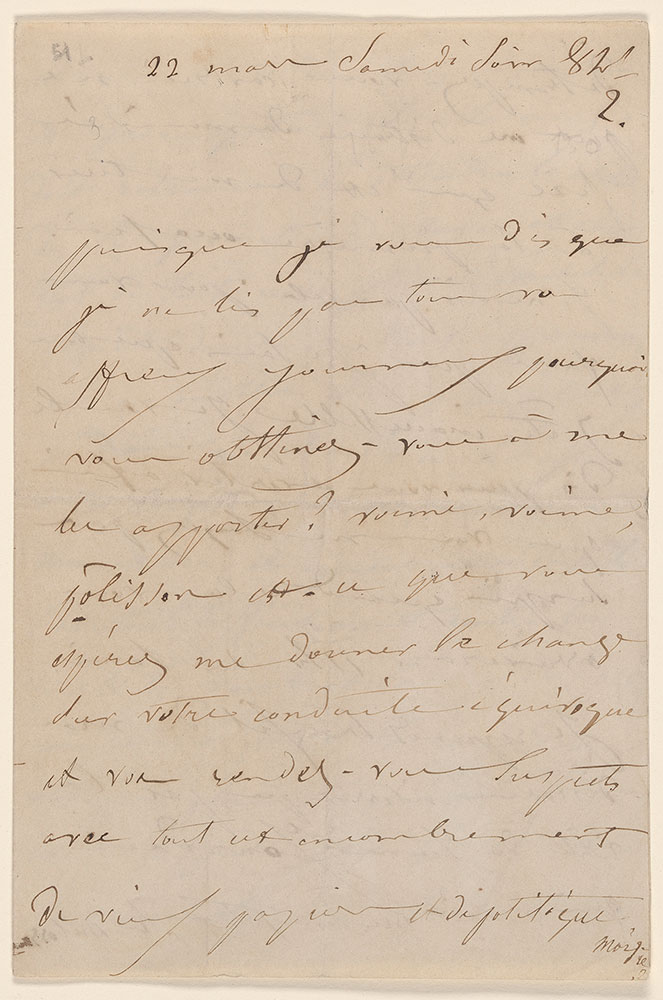 51
22 mars Samedi Soir 8h ½.
puisque je vous dis que
je ne lis pas tous vos
affreux journaux pourquoi
vous obstinez-vous à me
les apporter? voime, voime,
polisson est-ce que vous
espérez me donner le change
sur votre conduite équivoque
et vos rendez-vous suspects
avec tout cet encombrement
de vieux papiers et de politique